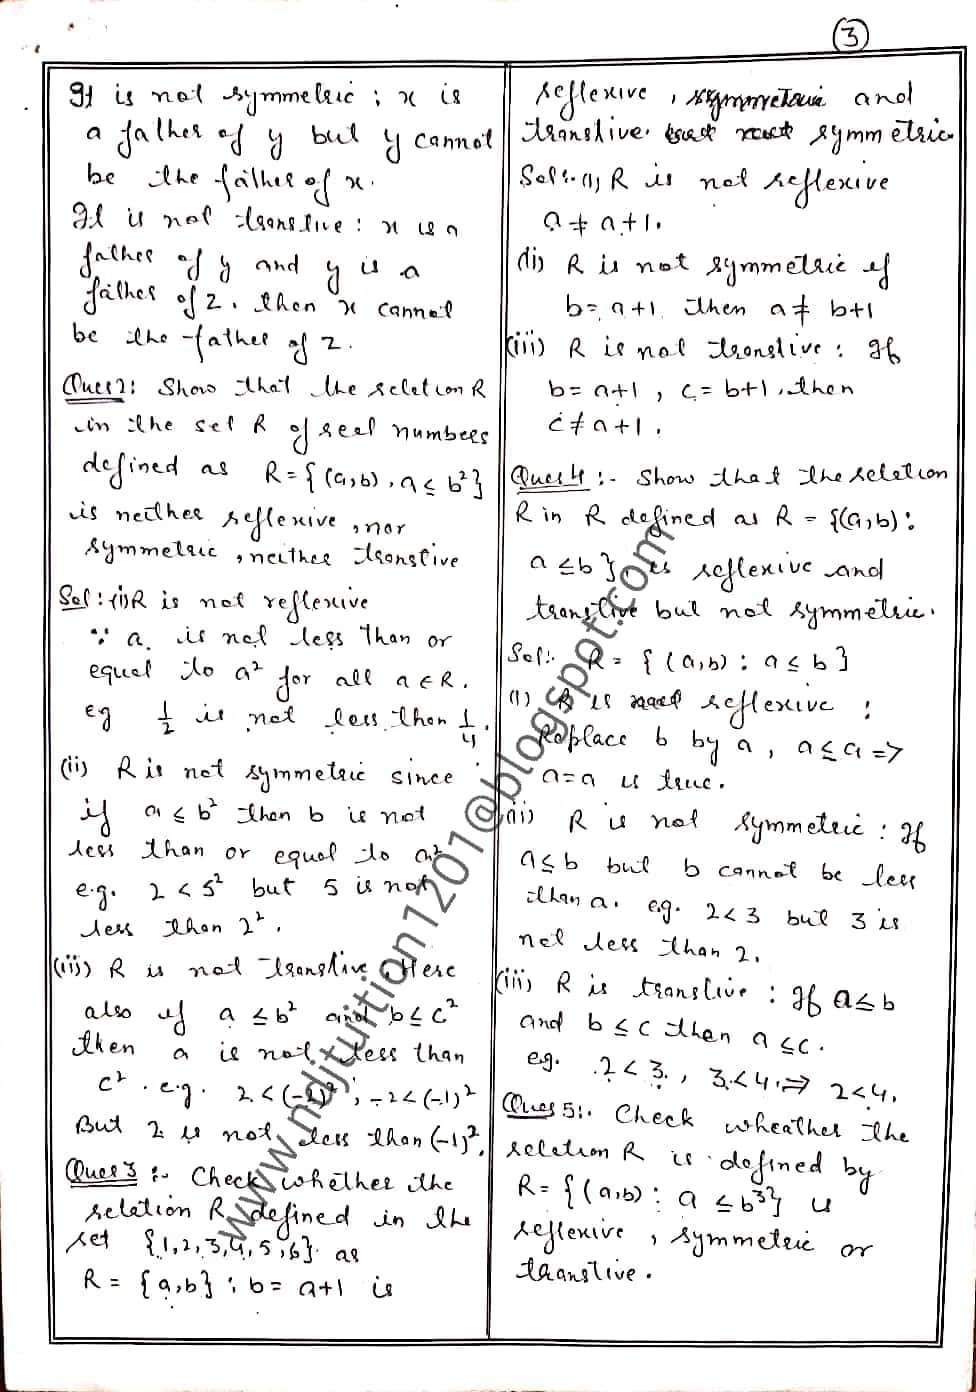 3
It is not symmetric : x is
a father of y but y cannot
be the father of x.
It is not transtive : x is a
father of y and y is a
father of z. then x cannot
be the father of z.
Ques 2: Show that the relation R
in the set R of reel numbers
defined as R = {(a,b), a ≤ b²}
is neither reflexive, nor
symmetric, neither transtive
Sol: (i) R is not reflexive
∵ a is not less than or
equal to a² for all a ∈ R.
eg 1/2 is not less then 1/4.
(ii) R is not symmetric since
if a ≤ b² then b is not
less than or equal to a²
e.g. 2 < 5² but 5 is not
less than 2².
(iii) R is not transtive Here
also if a ≤ b² and b ≤ c²
then a is not less than
c². e.g. 2 < (-2)², -2 < (-1)²
But 2 is not less than (-1)².
Ques 3 :- Check whether the
relation R defined in the
set {1,2,3,4,5,6} as
R = {a,b} : b = a+1 is
reflexive, symmetric and
transtive. symmetric.
Sol:- (i) R is not reflexive
a ≠ a+1.
(ii) R is not symmetric if
b = a+1 then a ≠ b+1
(iii) R is not transtive : If
b = a+1, c = b+1, then
c ≠ a+1.
Ques 4 :- Show that the relation
R in R defined as R = {(a,b) :
a ≤ b}, is reflexive and
transtive but not symmetric.
Sol:- R = {(a,b) : a ≤ b}
(i) R is reflexive :
Replace b by a, a ≤ a =>
a = a is true.
(ii) R is not symmetric : If
a ≤ b but b cannot be less
than a. e.g. 2 < 3 but 3 is
not less than 2.
(iii) R is transtive : If a ≤ b
and b ≤ c then a ≤ c.
e.g. 2 < 3, 3 < 4 => 2 < 4.
Ques 5:. Check wheather the
relation R is defined by
R = {(a,b) : a ≤ b³} is
reflexive, symmetric or
transtive.
www.ndjtuition1201@blogspot.com